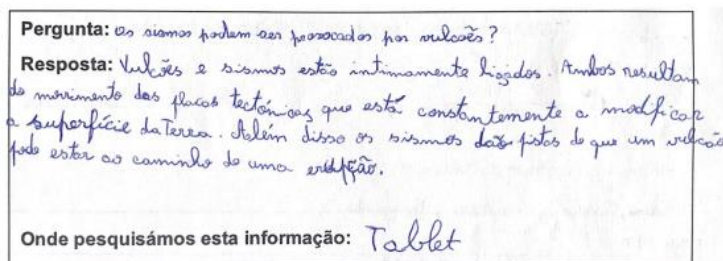 Pergunta: os sismos podem ser provocados por vulcões?
Resposta: Vulcões e sismos estão intimamente ligados. Ambos resultam
do movimento das placas tectónicas que está constantemente a modificar
a superfície da Terra. Além disso os sismos dão pistas de que um vulcão
pode estar ao caminho de uma erupção.
Onde pesquisámos esta informação: Tablet